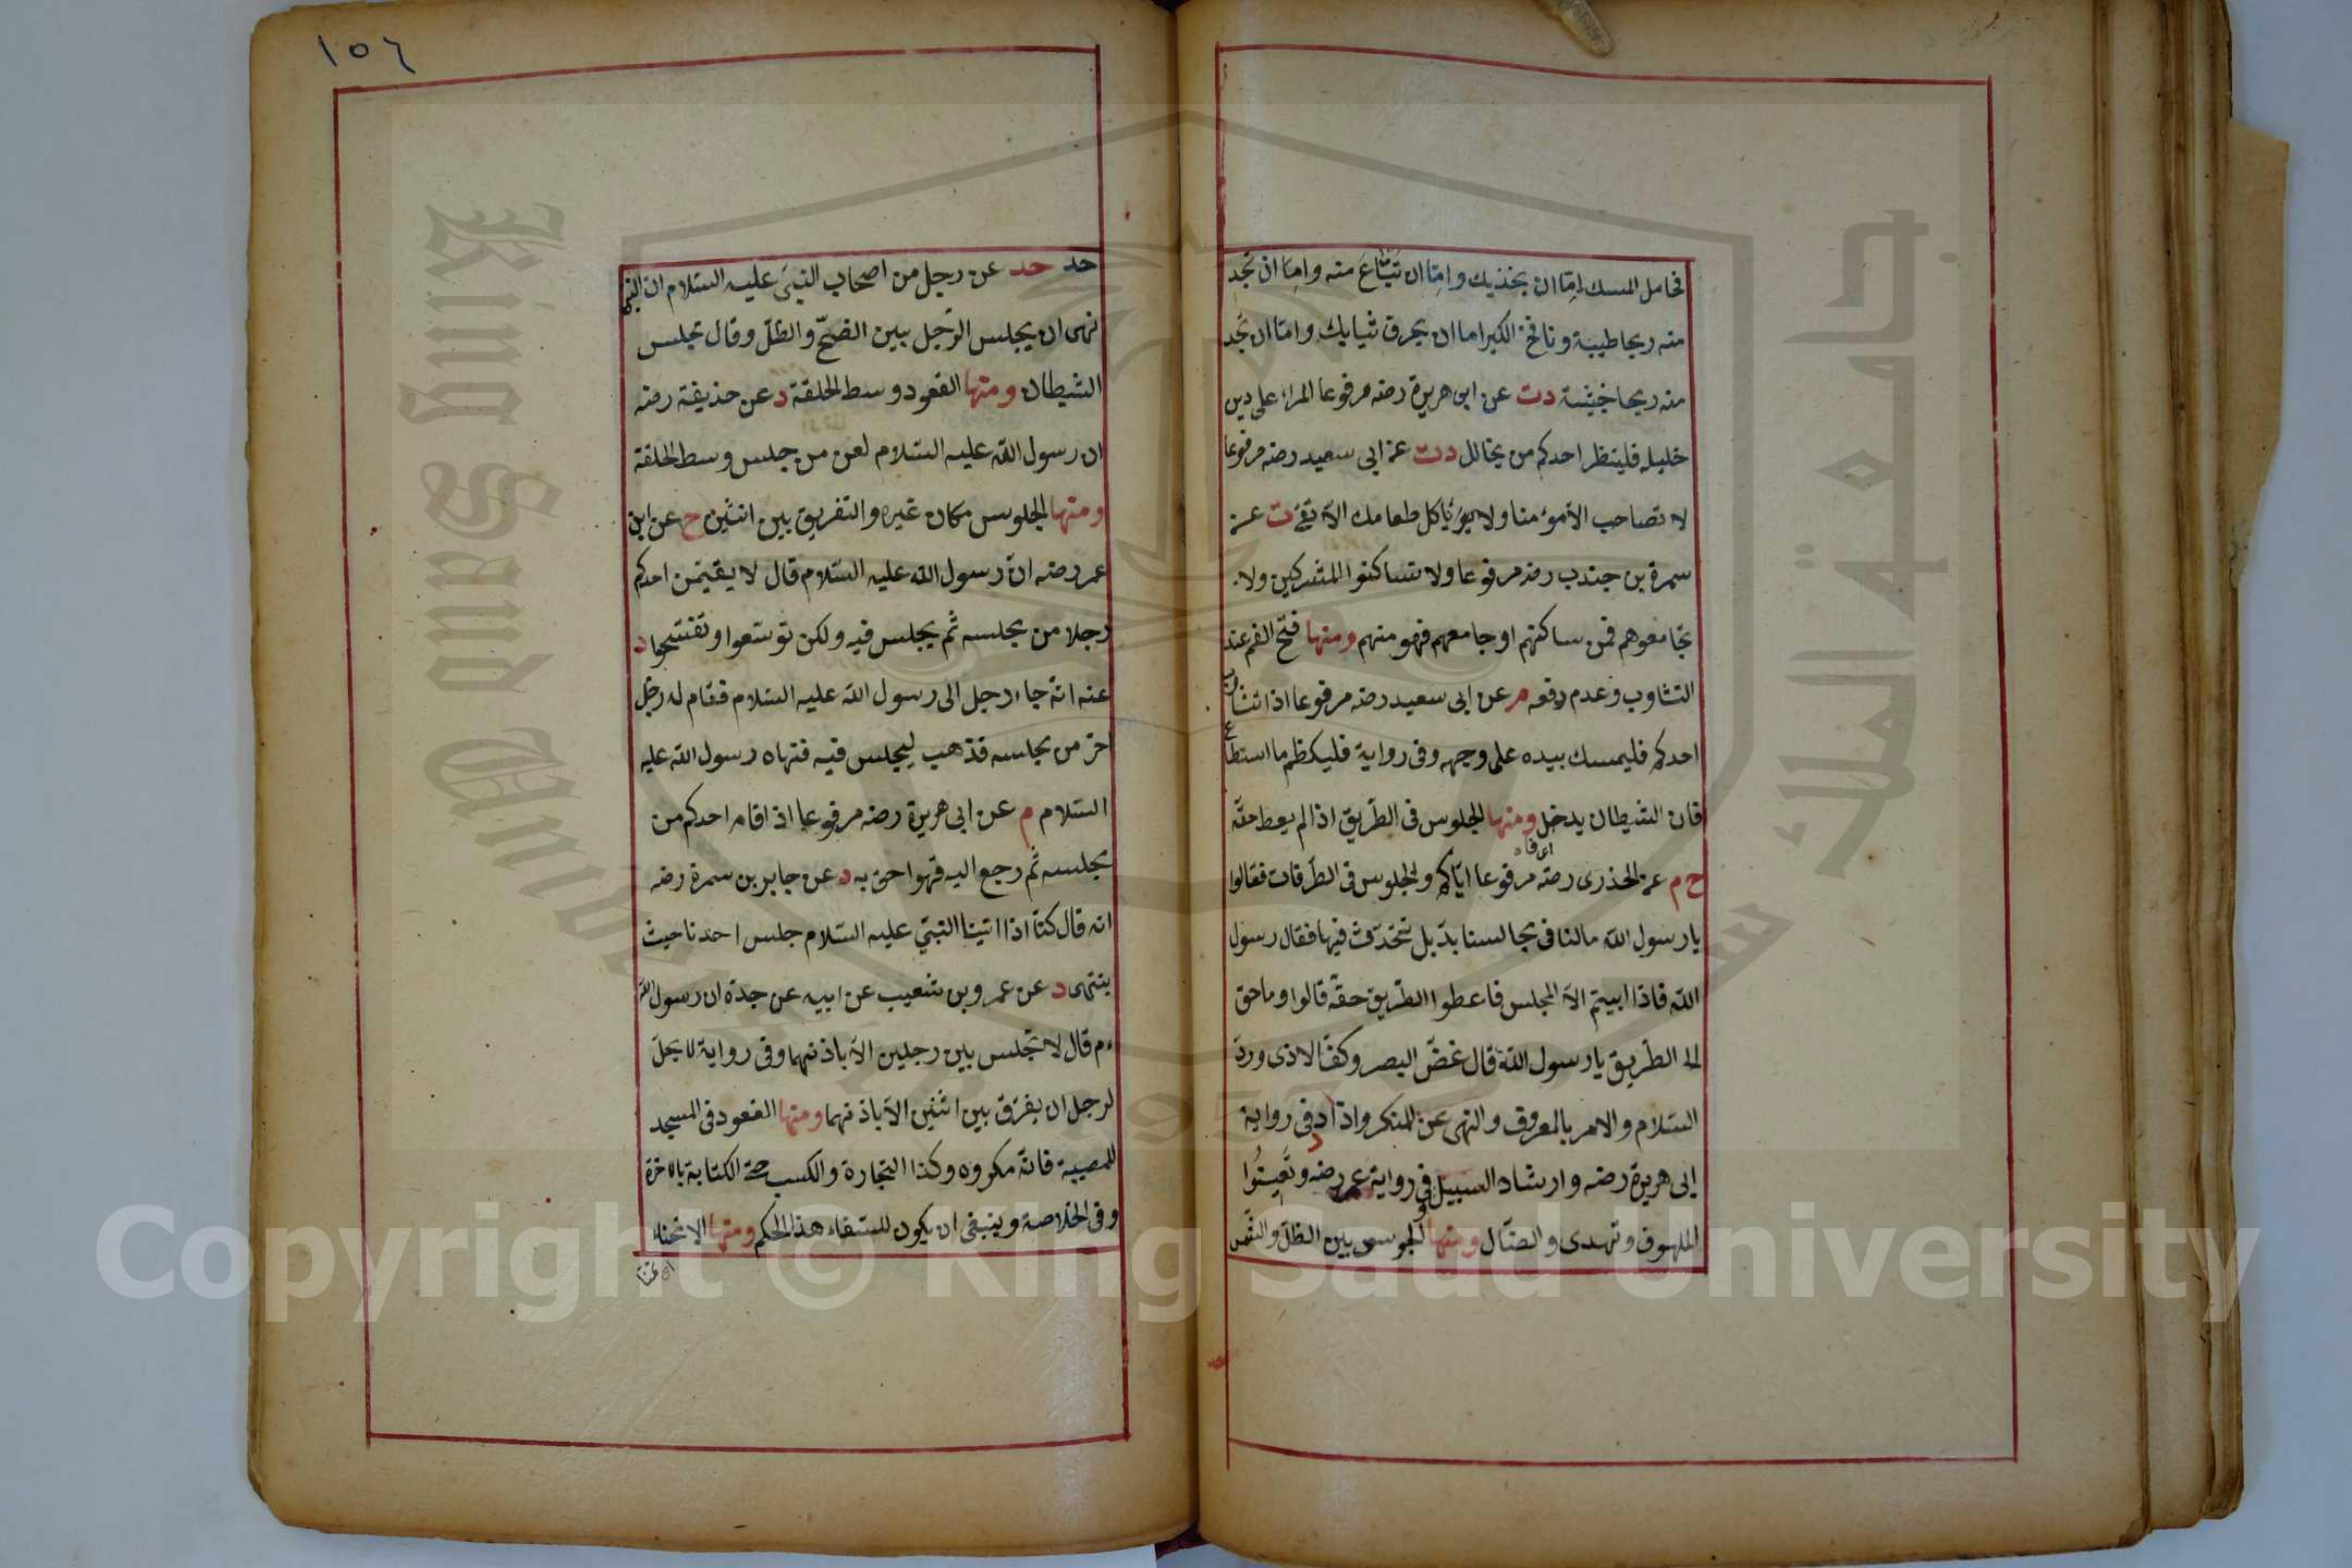 فحامل المسك اما ان يحذيك واما ان تبتاع منه واما ان تجد
منه ريحا طيبة ونافخ الكير اما ان يحرق ثيابك واما ان تجد
منه ريحا خبيثة دت عن ابى هريرة رضه مرفوعا المرء على دين
خليله فلينظر احدكم من يخالل دت عن ابى سعيد رضه مرفوعا
لا تصاحب الا مؤمنا ولا يأكل طعامك الا تقى ت عن
سمرة بن جندب رضه مرفوعا ولا تساكنوا المشركين ولا
تجامعوهم فمن ساكنهم او جامعهم فهو منهم ومنها فتح الفم عند
التثاوب وعدم دفعه م عن ابى سعيد رضه مرفوعا اذا تثاوب
احدكم فليمسك بيده على وجهه وفى رواية فليكظم ما استطاع
فان الشيطان يدخل ومنها الجلوس فى الطريق اذا لم يعط حقه
خ م عن الخذرى رضه مرفوعا اياكم والجلوس فى الطرقات فقالوا
يا رسول الله مالنا فى مجالسنا بد بل نتحدث فيها فقال رسول
الله فاذا ابيتم الا المجلس فاعطوا الطريق حقه قالوا وما حق
الطريق يا رسول الله قال غض البصر وكف الاذى ورد
السلام والامر بالمعروف والنهى عن المنكر وزاد د فى رواية
ابى هريرة رضه وارشاد السبيل وفى رواية عمر رضه وتغيثوا
الملهوف وتهدى والضال ومنها الجلوس بين الظل والشمس
١٥٦
حد حد عن رجل من اصحاب النبى عليه السلام ان النبى
نهى ان يجلس الرجل بين الضح والظل وقال مجلس
الشيطان ومنها القعود وسط الحلقة د عن حذيفة رضه
ان رسول الله عليه السلام لعن من جلس وسط الحلقة
ومنها الجلوس مكان غيره والتفريق بين اثنين خ عن ابن
عمر رضه ان رسول الله عليه السلام قال لا يقيمن احدكم
رجلا من مجلسه ثم يجلس فيه ولكن توسعوا وتفسحوا د
عنه انه جاء رجل الى رسول الله عليه السلام فقام له رجل
اخر من مجلسه فذهب ليجلس فيه فنهاه رسول الله عليه
السلام م عن ابى هريرة رضه مرفوعا اذا قام احدكم من
مجلسه ثم رجع اليه فهوا حق به د عن جابر بن سمرة رضه
انه قال كنا اذا اتينا النبى عليه السلام جلس احدنا حيث
ينتهى د عن عمرو بن شعيب عن ابيه عن جده ان رسول الله
عم قال لا تجلس بين رجلين الا باذنهما وفى رواية لا يحل
لرجل ان يفرق بين اثنين الا باذنهما ومنها القعود فى المسجد
للمصيبة فانه مكروه وكذا التجارة والكسب حتى الكتابة بالاجرة
وفى الخلاصة وينبغى ان يكون للسقاء هذا الحكم ومنها الانحناء
جامعة الملك سعود
King Saud University
Copyright © King Saud University